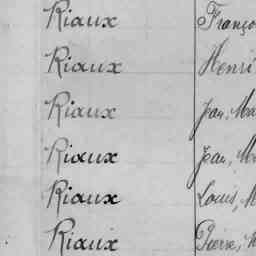 Riaux Franço
Riaux Henri
Riaux Jean, Ma
Riaux Jean, Ma
Riaux Louis, M
Riaux Pierre, M